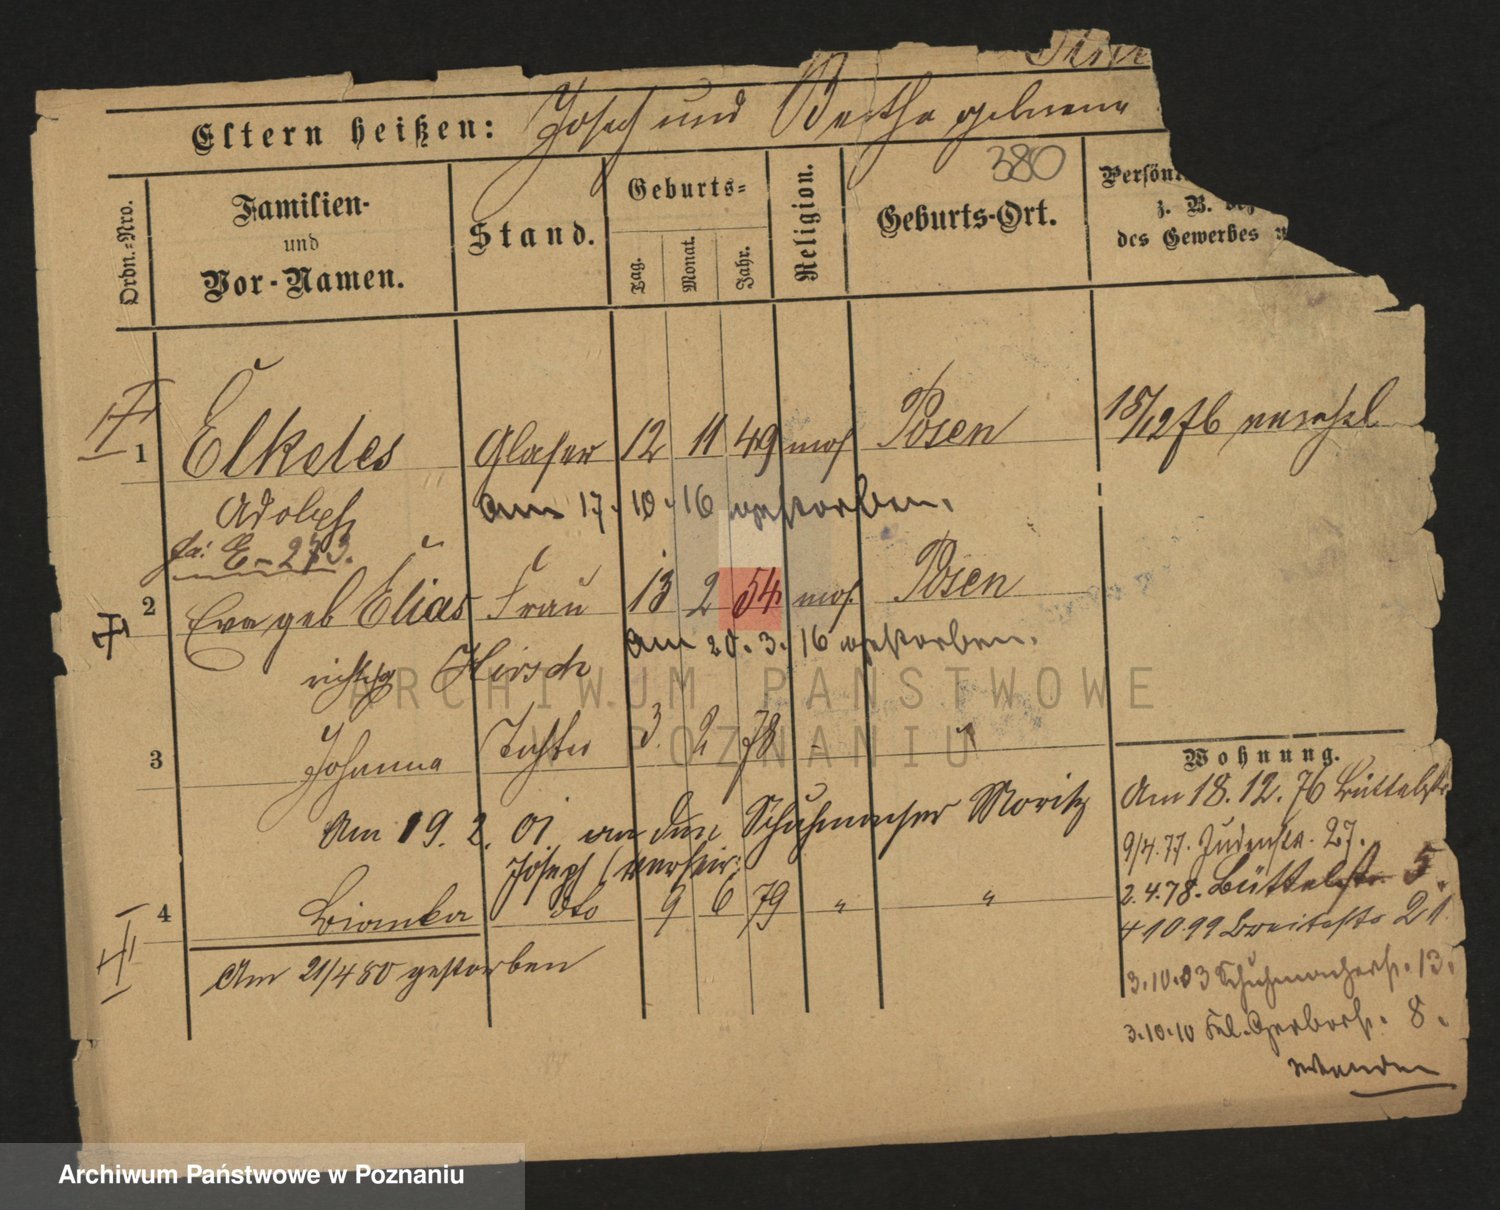 Eltern heißen: Joseph und Bertha geborene
380
Ordn.-Nro.
Familien-
und
Vor-Namen.
Stand.
Geburts-
Tag. Monat. Jahr.
Religion.
Geburts-Ort.
Persön
z. B.
des Gewerbes
1 Elkeles Glaser 12 11 49 mos. Posen 18/12 76
Adolph am 17.10.16 gestorben.
E-273.
2 Eva geb Elias Frau 13 2 54 mos. Posen
am 20.3.16 gestorben.
richtig Hirsch
3 Johanna Tochter 3. 2 78 - "
Am 19. 2. 01 an den Schuhmacher Moritz
Joseph verheir:
4 Bianka dto 9 6 79 " "
Am 21/4 80 gestorben
Wohnung.
Am 18.12.76 Büttelstr
9/4.77. Judenstr. 27.
2.4.78. Büttelstr. 5.
4 10 99 Breitestr 21.
3.10.03 Schuhmacherstr. 13.
3.10.10 Gerberstr. 8.
wenden
ARCHIWUM PAŃSTWOWE
W POZNANIU
Archiwum Państwowe w Poznaniu